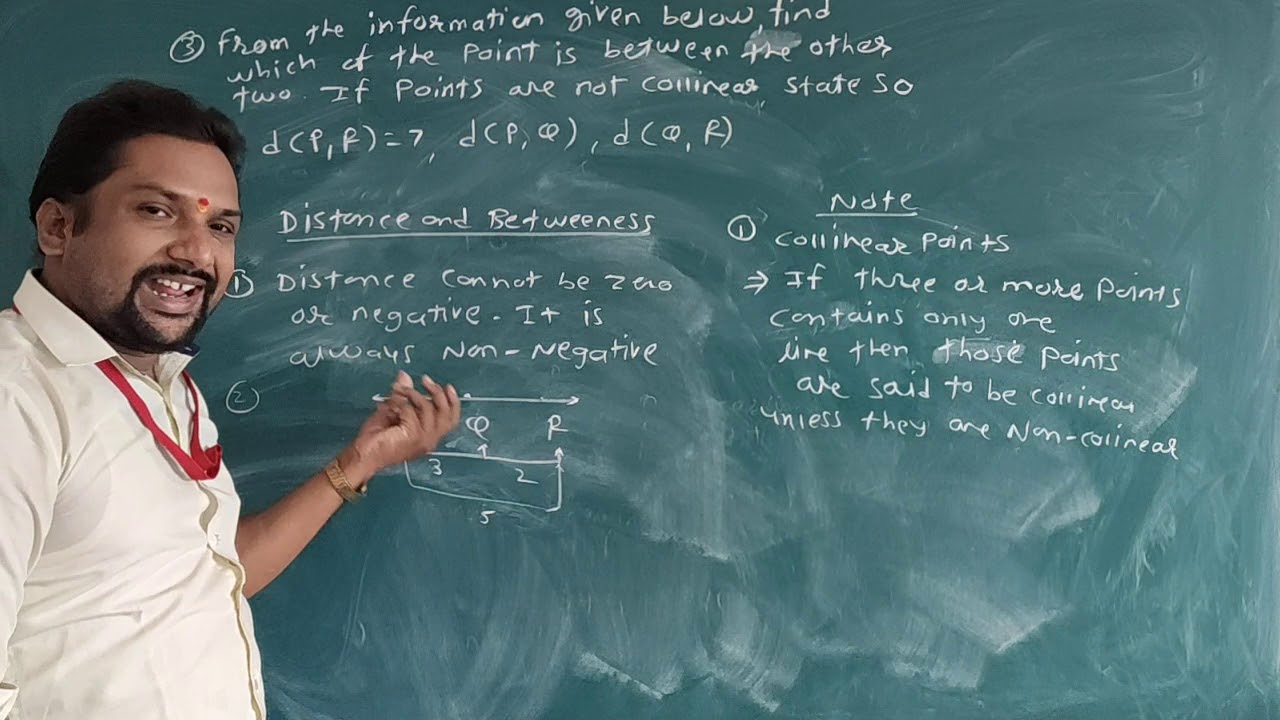 ③ From the information given below, find
which of the Point is between the other
two. If Points are not Collinear state so
d(P,R)=7, d(P,Q), d(Q,R)
Distance and Betweeness
① Distance cannot be zero
or negative. It is
always Non-Negative
②
Q R
3 2
5
Note
① Collinear Points
⇒ If three or more Points
contains only one
line then those points
are said to be collinear
unless they are Non-colinear